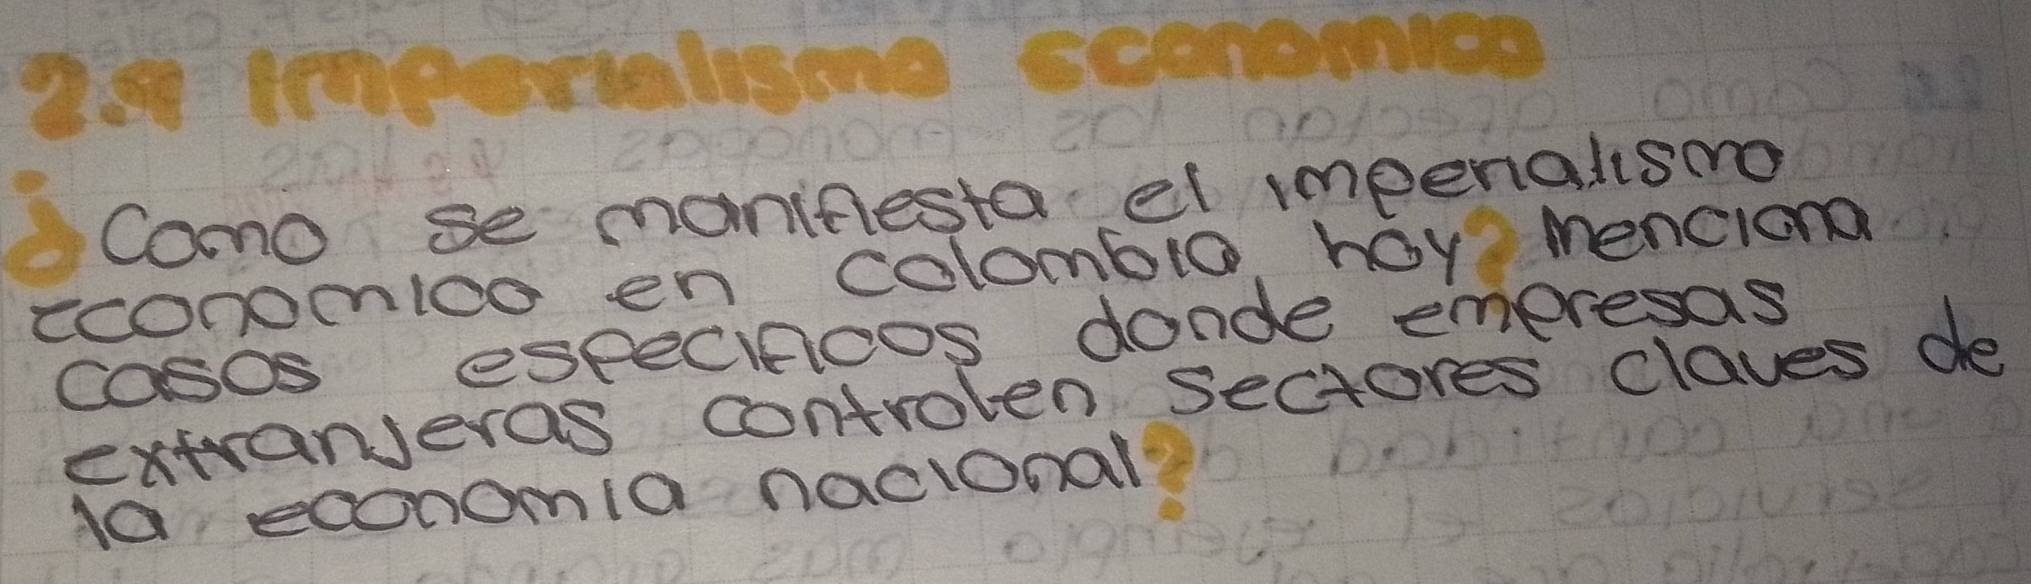 2.9 Imperialismo economico
¿Como se manifiesta el imperialismo
economico en colombia hoy? Menciona
casos especificos donde empresas
extranjeras controlen sectores claves de
la economia nacional?